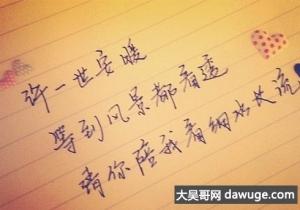 许一世安暖
等到风景都看透
请你陪我看细水长流
大吴哥网 dawuge.com